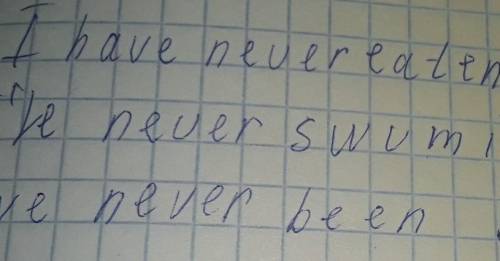 I have never eaten
've never swum
ve never been